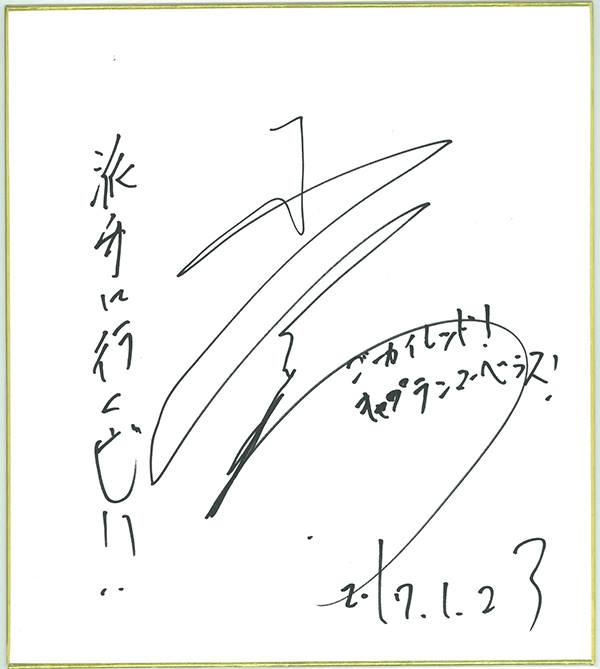 派手に行くぜ!!
ゴーカイレッド!
キャプテンマーベラス!
2017.1.23